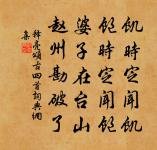 飢時定聞飢
飽時定聞飽
婆子在台山
趙州勘破了
釋亮頌古四首詞典網
集